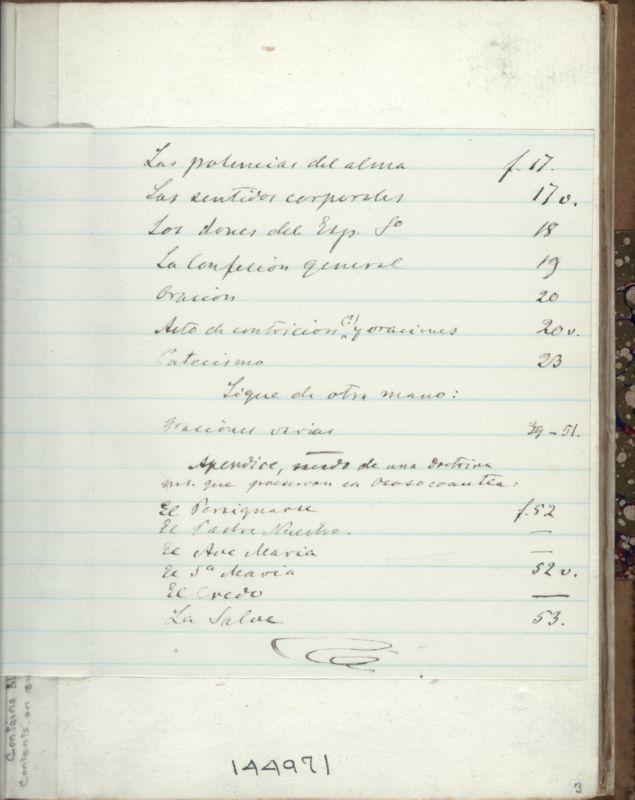 Las potencias del alma f. 17.
Los sentidos corporales 17 v.
Los dones del Esp. So 18
La Confesion general 19
Oracion 20
Acto de contricion (?) y oraciones 20 v.
Catecismo 23
Sigue de otra mano:
Oraciones varias 39-51.
Apendice, de una doctrina
ms. que preservan en Ocosocoautla:
El Persignarse f. 52
El Padre Nuestro. —
El Ave Maria —
El Sa Maria 52 v.
El Credo —
La Salve 53.
Contains
Contents on
144971
3